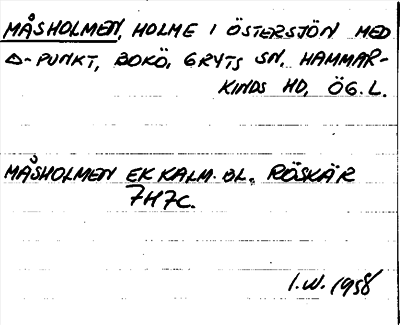 MÅSHOLMEN, HOLME I ÖSTERSJÖN MED
△-PUNKT, BOKÖ, GRYTS SN, HAMMAR-
KINDS HD, ÖG.L.
MÅSHOLMEN EK KALM. BL. RÖSKÄR
7H7C.
I.W. 1958